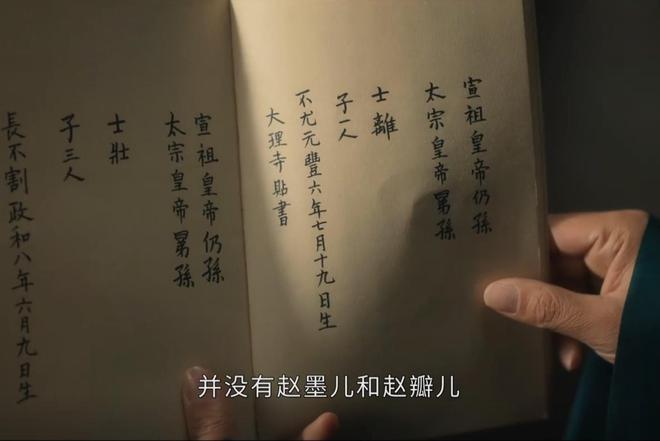 宣祖皇帝仍孫
太宗皇帝晜孫
士離
子一人
不尤元豐六年七月十九日生
大理寺貼書
宣祖皇帝仍孫
太宗皇帝晜孫
士壯
子三人
長不割政和八年六月九日生
并没有赵墨儿和赵瓣儿